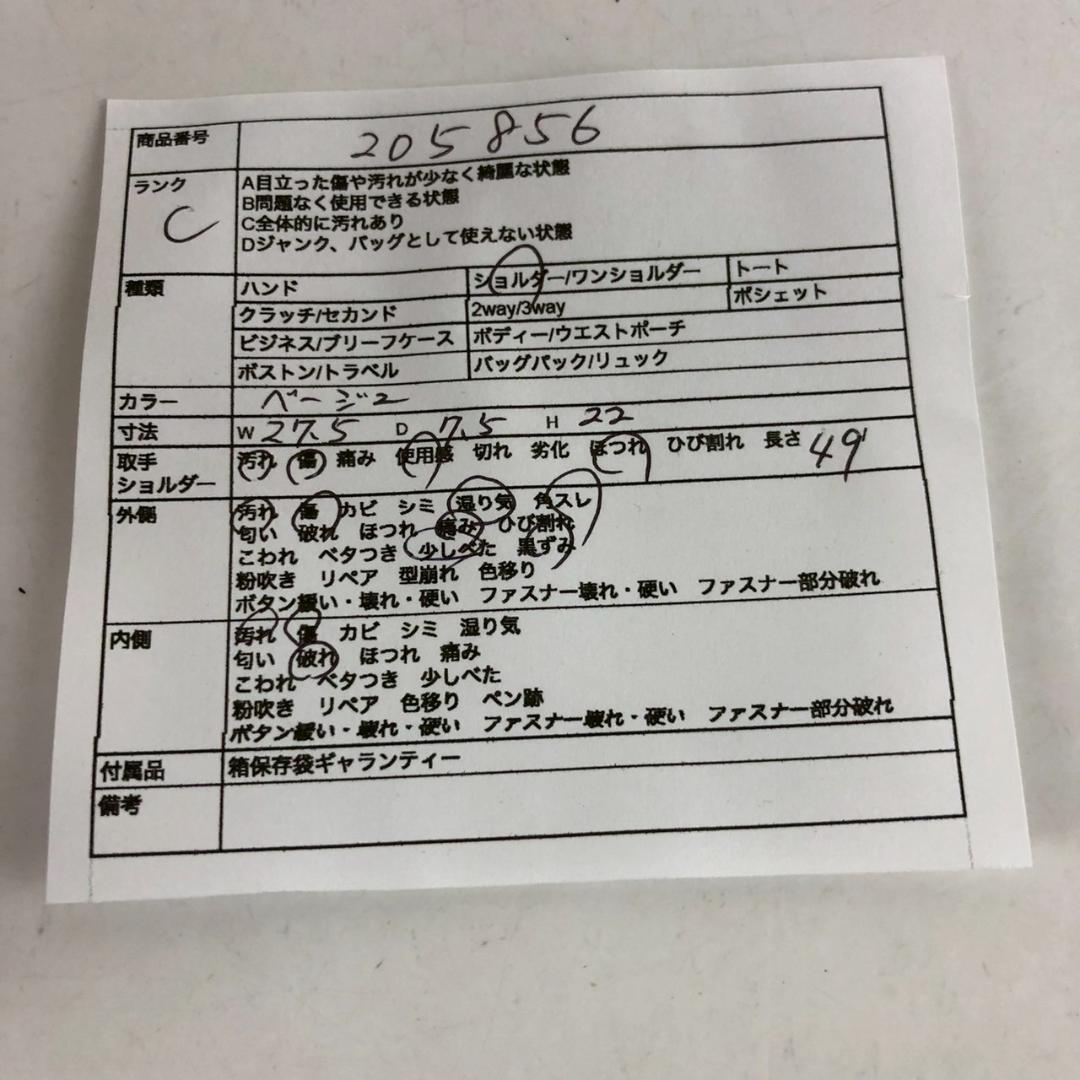 商品番号 205856
ランク A目立った傷や汚れが少なく綺麗な状態
C B問題なく使用できる状態
C全体的に汚れあり
Dジャンク、バッグとして使えない状態
種類 ハンド ショルダー/ワンショルダー トート
クラッチ/セカンド 2way/3way ポシェット
ビジネス/ブリーフケース ボディー/ウエストポーチ
ボストン/トラベル バッグパック/リュック
カラー ベージュ
寸法 W 27.5 D 7.5 H 22
取手 汚れ 傷 痛み 使用感 切れ 劣化 ほつれ ひび割れ 長さ 49
ショルダー
外側 汚れ 傷 カビ シミ 湿り気 角スレ
匂い 破れ ほつれ 痛み ひび割れ
こわれ ベタつき 少しべた 黒ずみ
粉吹き リペア 型崩れ 色移り
ボタン緩い・壊れ・硬い ファスナー壊れ・硬い ファスナー部分破れ
内側 汚れ 傷 カビ シミ 湿り気
匂い 破れ ほつれ 痛み
こわれ ベタつき 少しべた
粉吹き リペア 色移り ペン跡
ボタン緩い・壊れ・硬い ファスナー壊れ・硬い ファスナー部分破れ
付属品 箱保存袋ギャランティー
備考